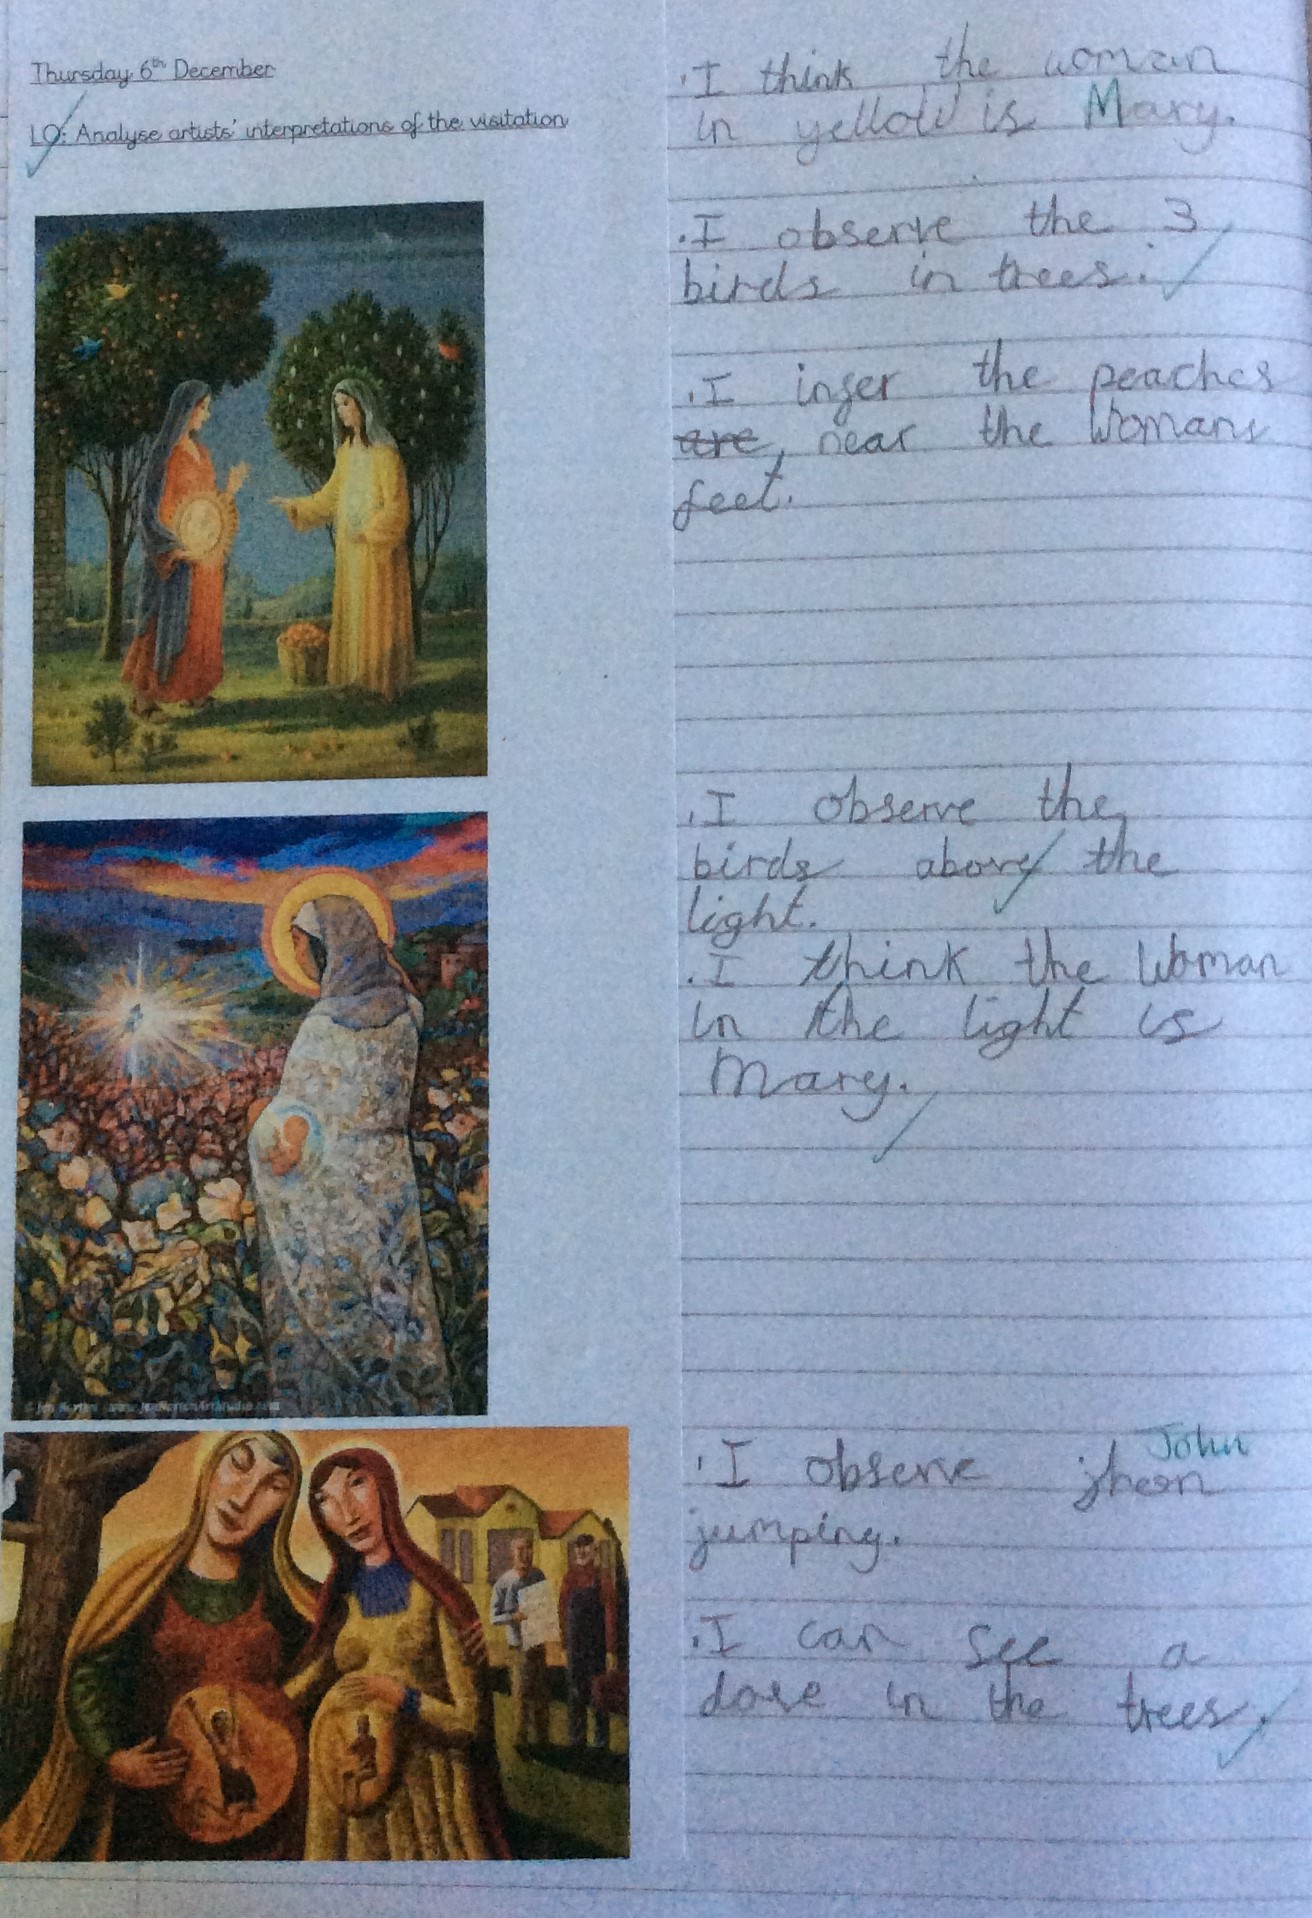 Thursday 6th December
LO: Analyse artists' interpretations of the visitation
.I think the woman
in yellow is Mary.
.I observe the 3
birds in trees.
.I infer the peaches
are, near the womans
feet.
.I observe the
birds above the
light.
.I think the woman
in the light is
Mary.
John
.I observe jheon
jumping.
.I can see a
dove in the trees.